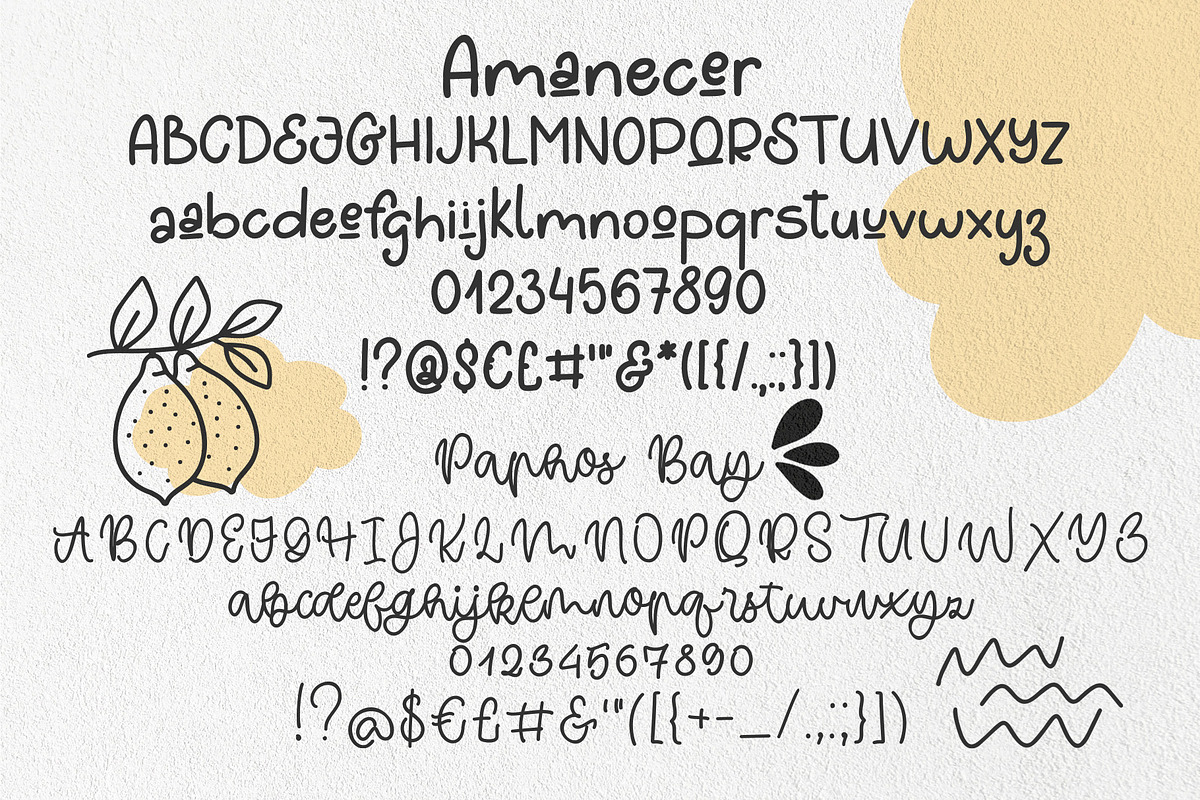 Amanecer
ABCDEFGHIJKLMNOPQRSTUVWXYZ
aabcdeefghiijklmnoopqrstuuvwxyz
01234567890
!?@$€£#"'&*([{/.,:;}])
Paphos Bay
ABCDEFGHIJKLMNOPQRSTUVWXYZ
abcdefghijklmnopqrstuvwxyz
01234567890
!?@$€£#&"'([{+-_/.,:;}])